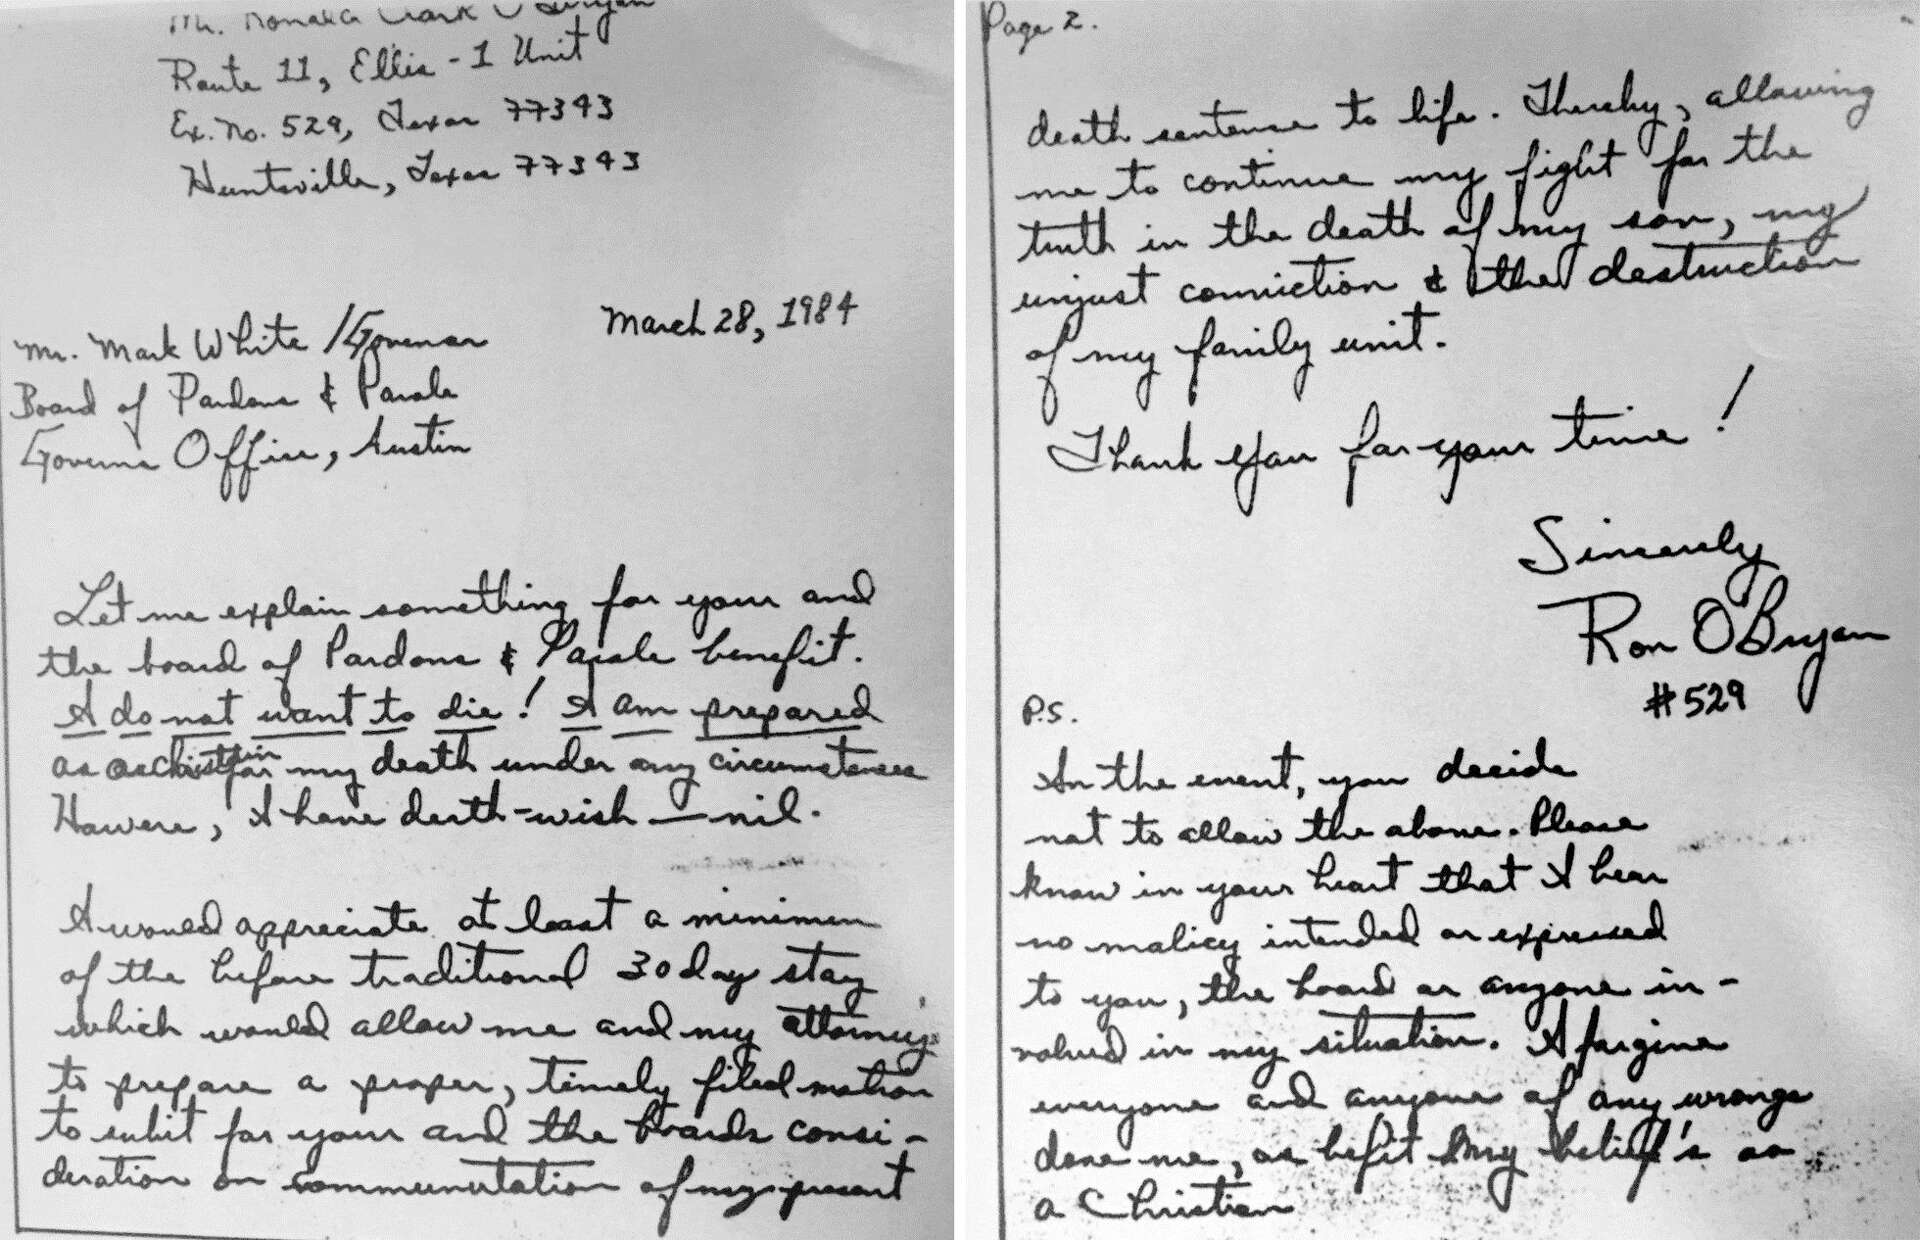 Mr. Ronald Clark O'Bryan
Route 11, Ellis - 1 Unit
Ex. No. 529, Texas 77343
Huntsville, Texas 77343
Mr. Mark White / Govenor
March 28, 1984
Board of Pardons & Parole
Governs Office, Austin
Let me explain something for your and
the board of Pardons & Parole benefit.
I do not want to die! I am prepared
as a christian for my death under any circumstances
Howere, I have derth-wish — nil.
I would appreciate at least a minimum
of the before traditional 30 day stay
which would allow me and my attorneys
to prepare a proper, timely filed motion
to subit for your and the boards consi-
deration on communutation of my present
Page 2.
death sentense to life. Thereby, allowing
me to continue my fight for the
truth in the death of my son, my
unjust conviction & the destruction
of my family unit.
Thank you for your time!
Sincerely
Ron O'Bryan
#529
P.S.
In the event, you decide
not to allow the above. Please
know in your heart that I bear
no malicy intended or expressed
to you, the board or anyone in-
volved in my situation. I forgive
everyone and anyone of any wrongs
done me, as befit my belief's as
a Christian